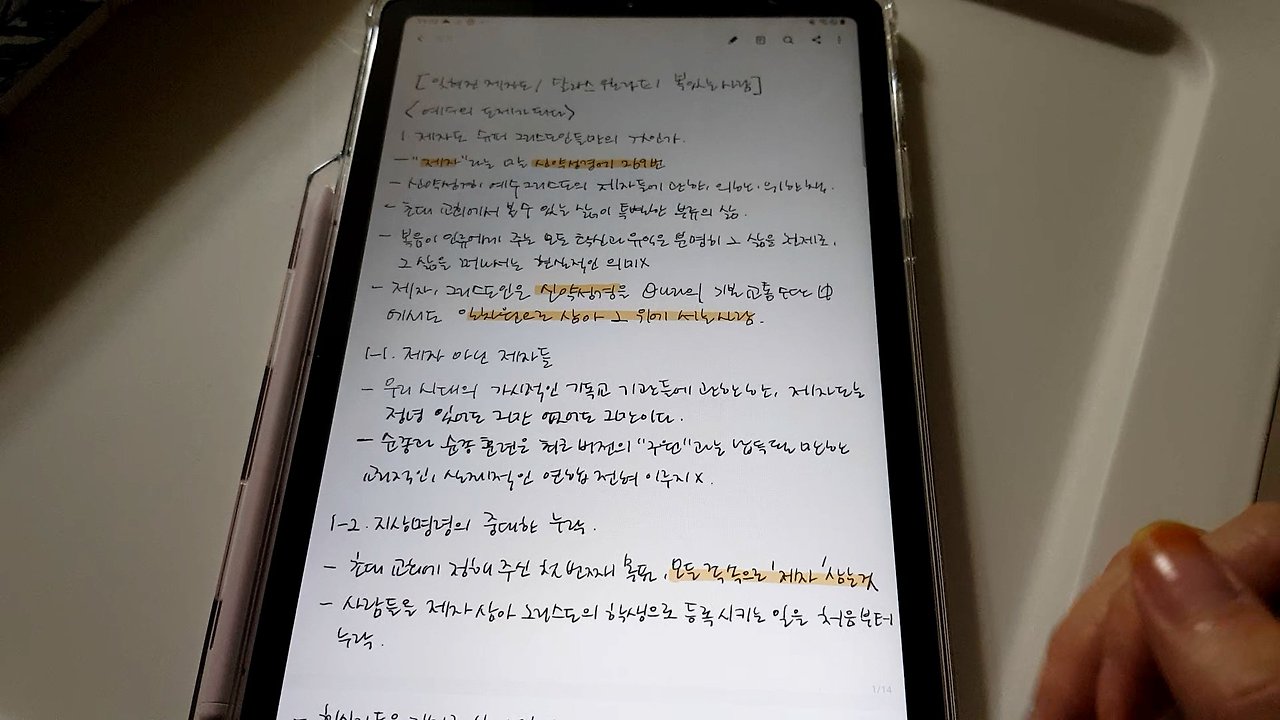 [잊혀진 제자도 / 달라스 윌라드 / 복있는사람]
<예수의 도제가 되다>
1. 제자도 슈퍼 그리스도인들만의 것인가.
- "제자"라는 말 신약성경에 269번
- 신약성경이 예수 그리스도의 제자들에 단한, 의한, 위한 책.
- 초대 교회에서 볼 수 있는 삶이 특별한 부류의 삶.
- 복음이 인류에게 주는 모든 확신과 유익은 분명히 그 삶을 전제로,
그 삶을 떠나서는 현실적인 의미X
- 제자, 그리스도인은 신약성경을 하나의 기본 교훈
에서도 삼아 그 위에 서는 사람.
1-1. 제자 아닌 제자들
- 우리 시대의 가시적인 기독교 기관들에 관한 한, 제자도는
정녕 있어도 그만 없어도 그만이다.
- 순종과 순종 훈련은 최근 버전의 "구원"과는 납득될 만한
교리적인, 실제적인 연합 전혀 이루지X.
1-2. 지상명령의 중대한 누락.
- 초대 교회에 정해 주신 첫 번째 목표, 모든 족속으로 '제자' 삼는 것
- 사람들을 제자 삼아 그리스도의 학생으로 등록시키는 일을 처음부터
누락.
1/14